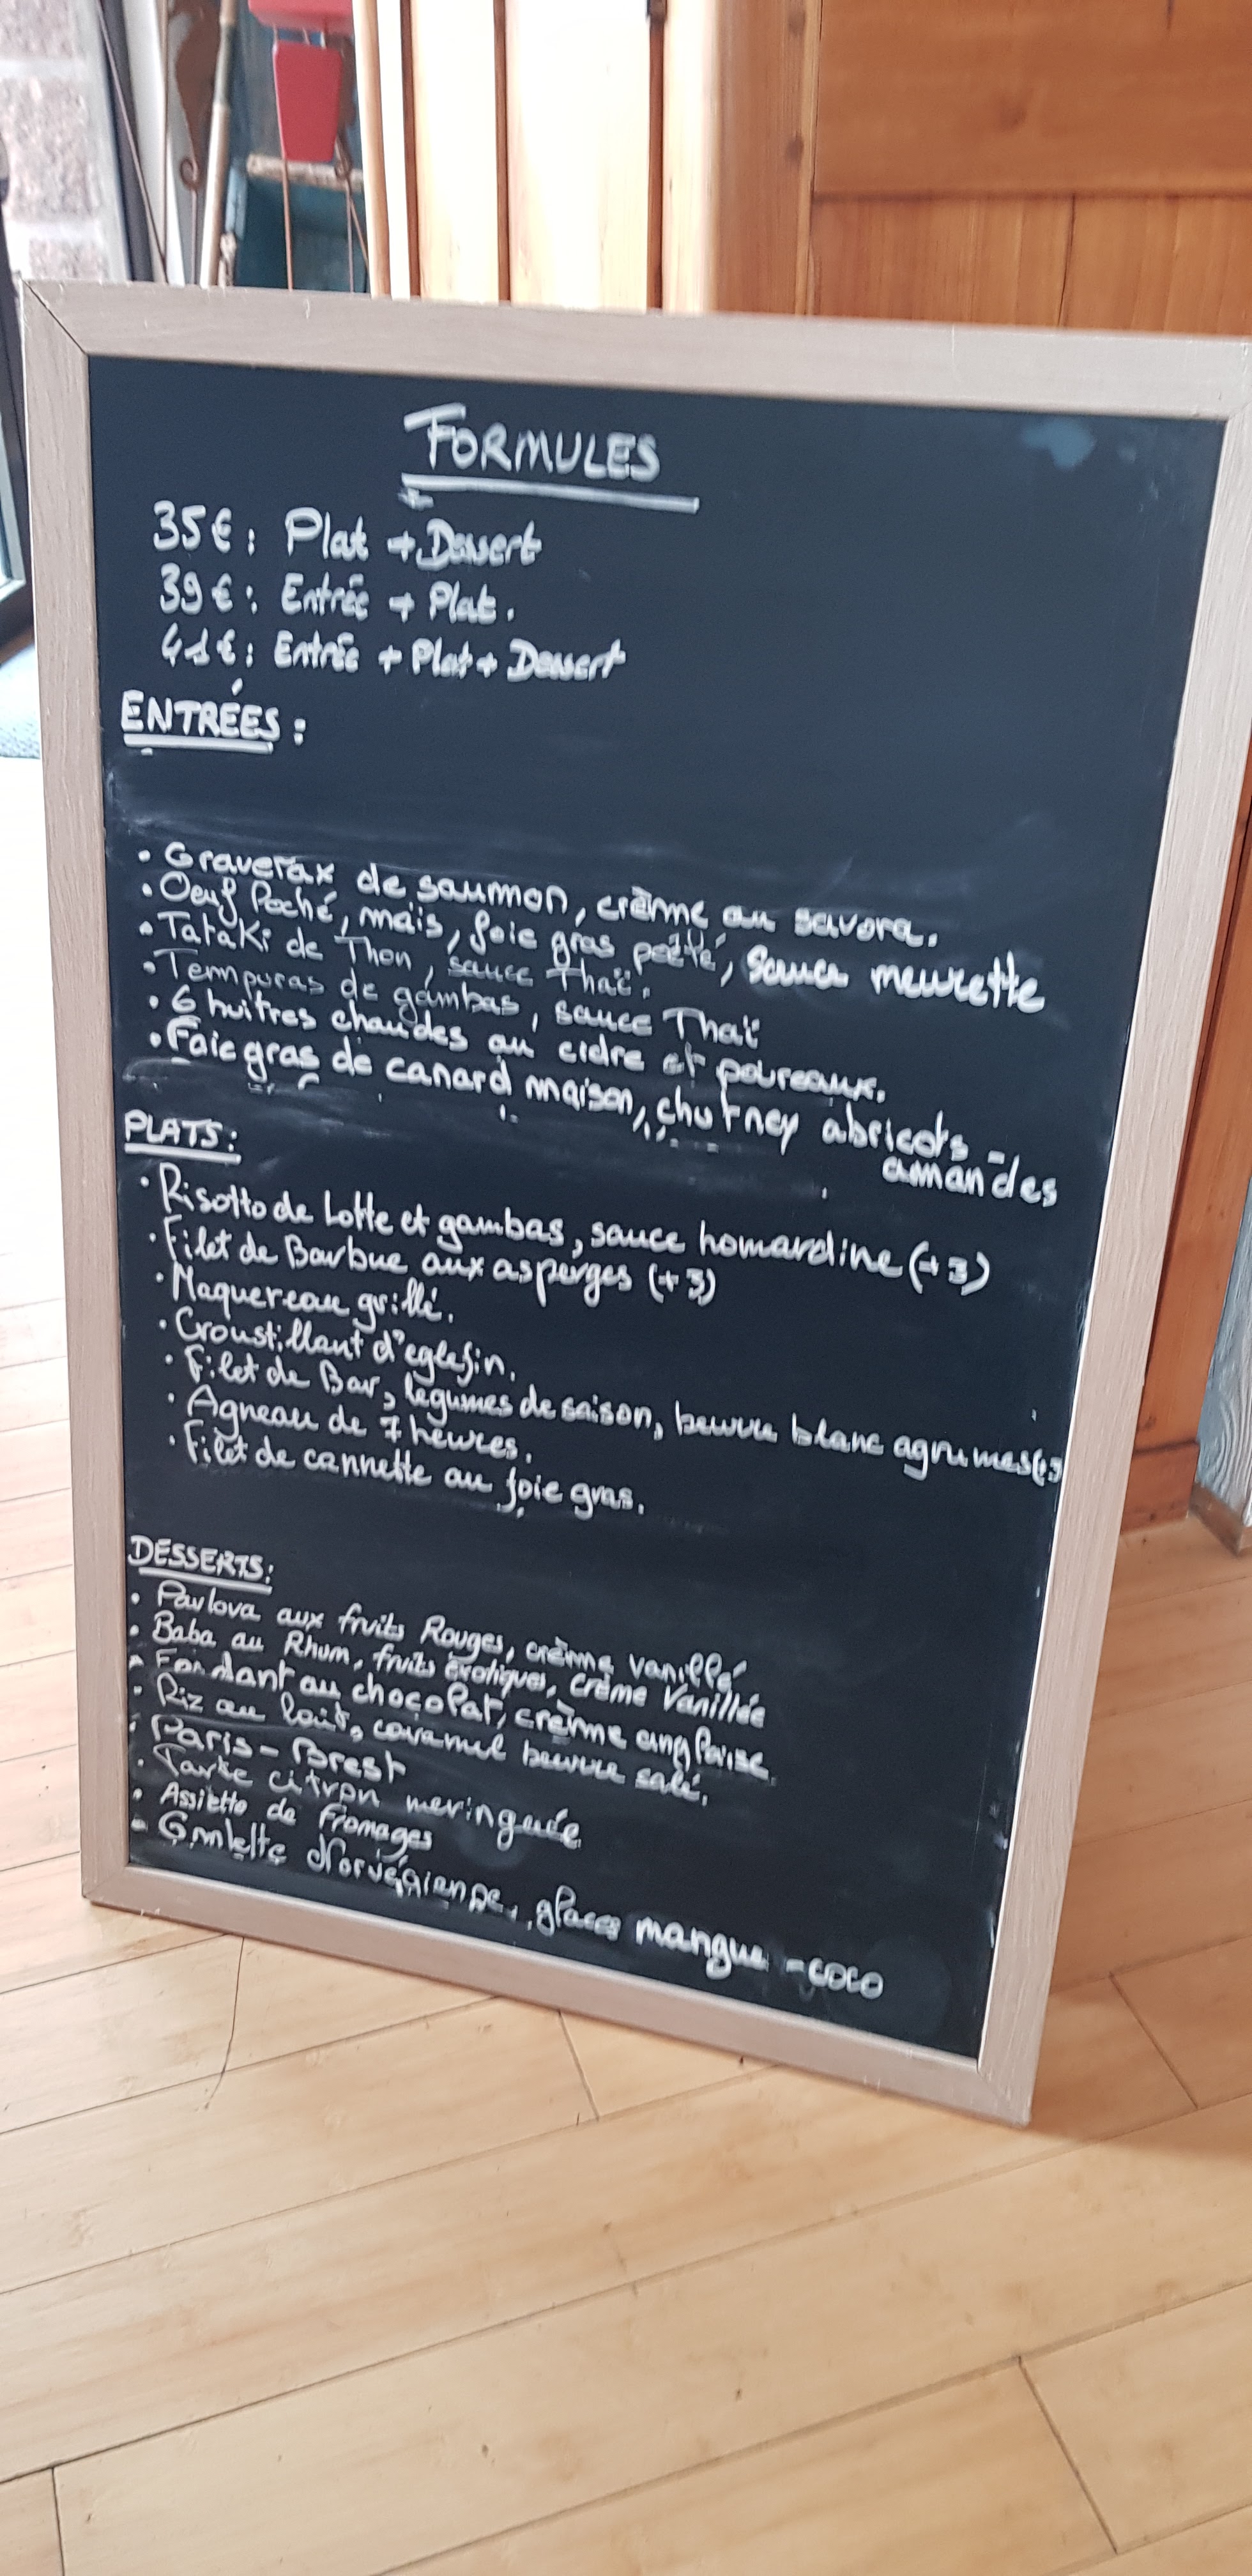 FORMULES
35€: Plat + Dessert
39€: Entrée + Plat.
41€: Entrée + Plat + Dessert
ENTRÉES:
• Graverax de saumon, crème au savora.
• Oeuf Poché, maïs, foie gras poêlé, sauce meurette
• Tataki de Thon, sauce Thaï.
• Tempuras de gambas, sauce Thaï
• 6 huîtres chaudes au cidre et poireaux.
• Foie gras de canard maison, chutney abricots -
amandes
PLATS:
• Risotto de Lotte et gambas, sauce homardine (+3)
• Filet de Barbue aux asperges (+3)
• Maquereau grillé.
• Croustillant d'eglefin.
• Filet de Bar, legumes de saison, beurre blanc agrumes (+3
• Agneau de 7 heures.
• Filet de cannette au foie gras.
DESSERTS:
• Pavlova aux fruits Rouges, crème vanillé
• Baba au Rhum, fruits exotiques, crème Vanillée
• Fondant au chocolat, crème anglaise
• Riz au lait, caramel beurre salé.
• Paris-Brest
• Tarte citron meringuée
• Assiette de Fromages
• Omlette Norvégienne, glaces mangue - coco